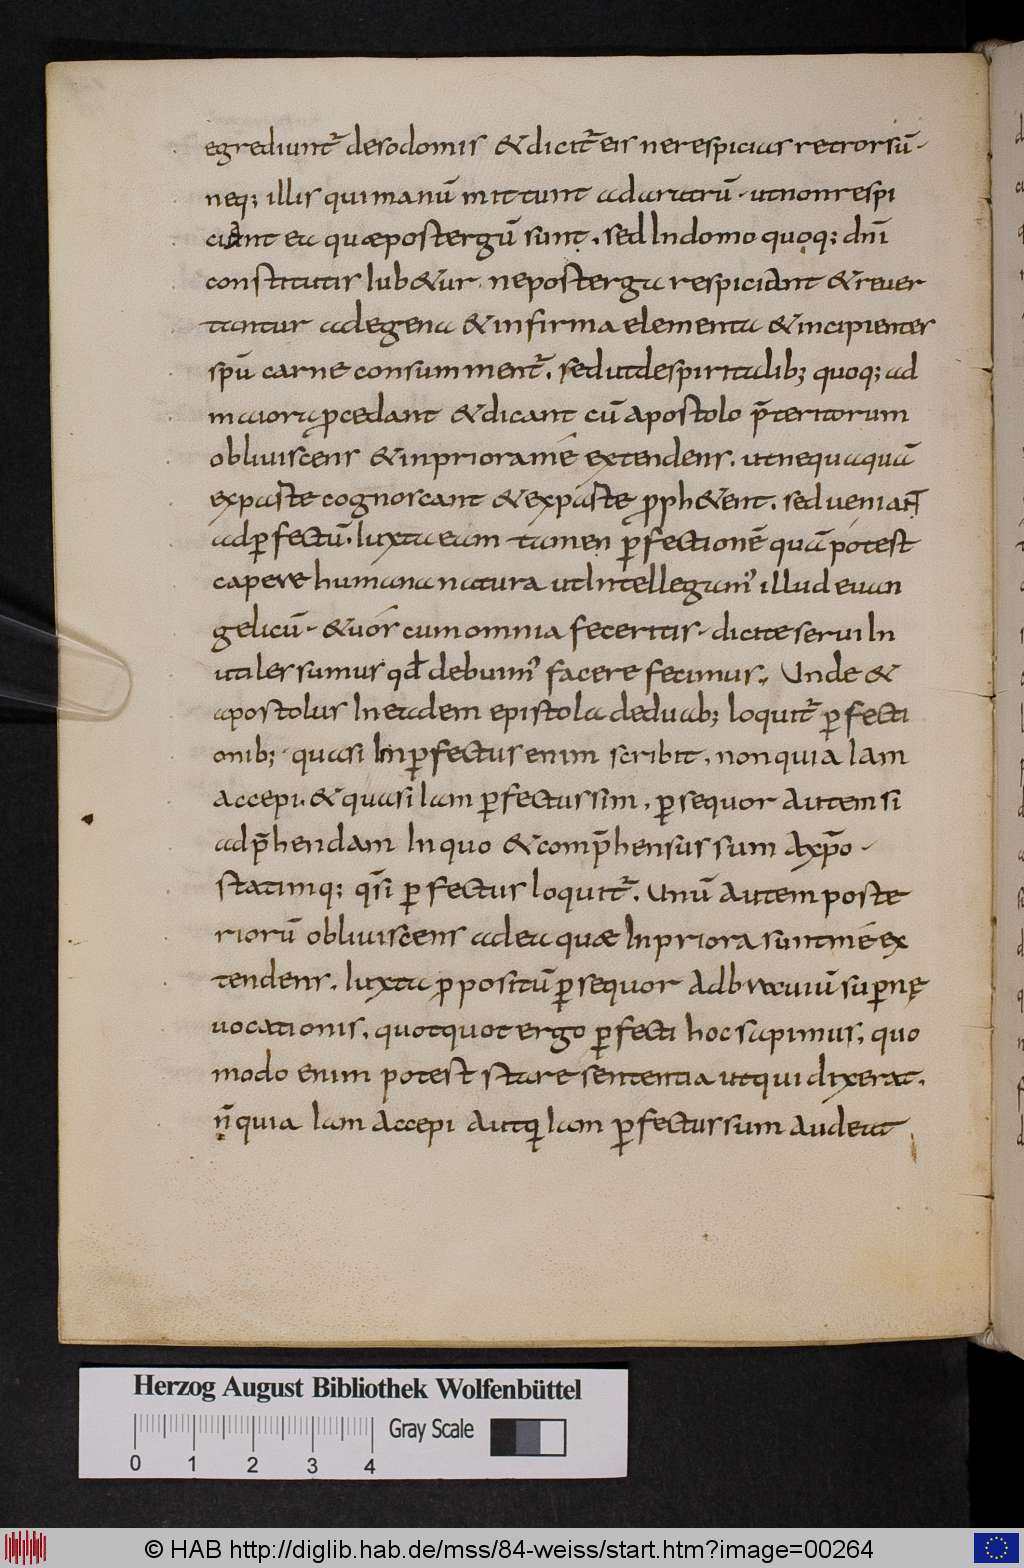 egrediunt᷑ desodomis &dicit᷑ eis nerespicias retrorsū·
neq; illis quimanū mittunt adaratrū· utnonrespi
ciant ea quæpostergū sunt, sed Indomo quoq; dnī
constitutis Iub&ur neposterga respiciant &reuer
tantur adegena &infirma elementa &incipientes
spū carne consumment᷑. sedutdespiritalib; quoq; ad
maiora ꝓcedant &dicant cū apostolo p̄teritorum
obliuiscens &inpriorame extendens. utnequaquā
exparte cognoscant &exparte ꝓph&ent. sedueniant
adꝑfectū. Iuxtaeam tamen ꝑfectionē quā potest
capere humana natura utIntellegamꝰ illud euan
gelicū· &uos cumomnia feceritis· dicite serui In
utiles sumus qd̄ debuimꝰ facere fecimus. Unde &
apostolus In eadem epistola deduab; loquit᷑ ꝑfecti
onib; · quasi Inꝑfectus enim scribit, non quia Iam
accepi. &quasi Iam ꝑfectus sim, ꝑsequor autem si
adp̄hendam In quo &comp̄hensus sum axp̄o·
statimq; qs̄i ꝑfectus loquit᷑. Unū autem poste
riorū obliuiscens adea quæ Inpriora sunt me ex
tendens. Iuxta ꝓpositū ꝑsequor adbrauiū suꝑnę
uocationis, quotquot ergo ꝑfecti hoc sapimus, quo
modo enim potest stare sententia utqui dixerat.
n̄ quia Iam accepi autq Iam ꝑfectus sum audeat
Herzog August Bibliothek Wolfenbüttel
Gray Scale
0 1 2 3 4
© HAB http://diglib.hab.de/mss/84-weiss/start.htm?image=00264